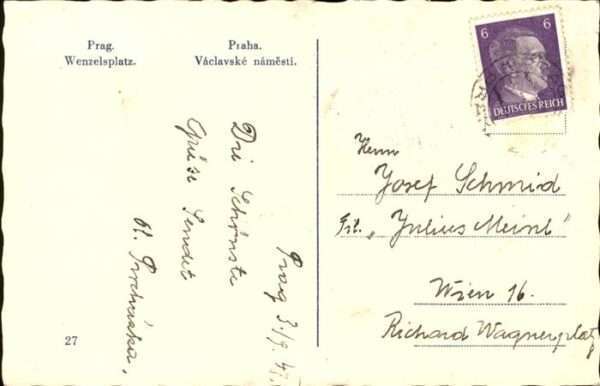 Prag.
Wenzelsplatz.
Praha.
Václavské náměstí.
6 6
DEUTSCHES REICH
Prag 3./9. 43
Die Schönste
Grüsse Sendet
Herrn
Josef Schmid
Fa. „Julius Meinl"
Wien 16.
Richard Wagnerplatz
27